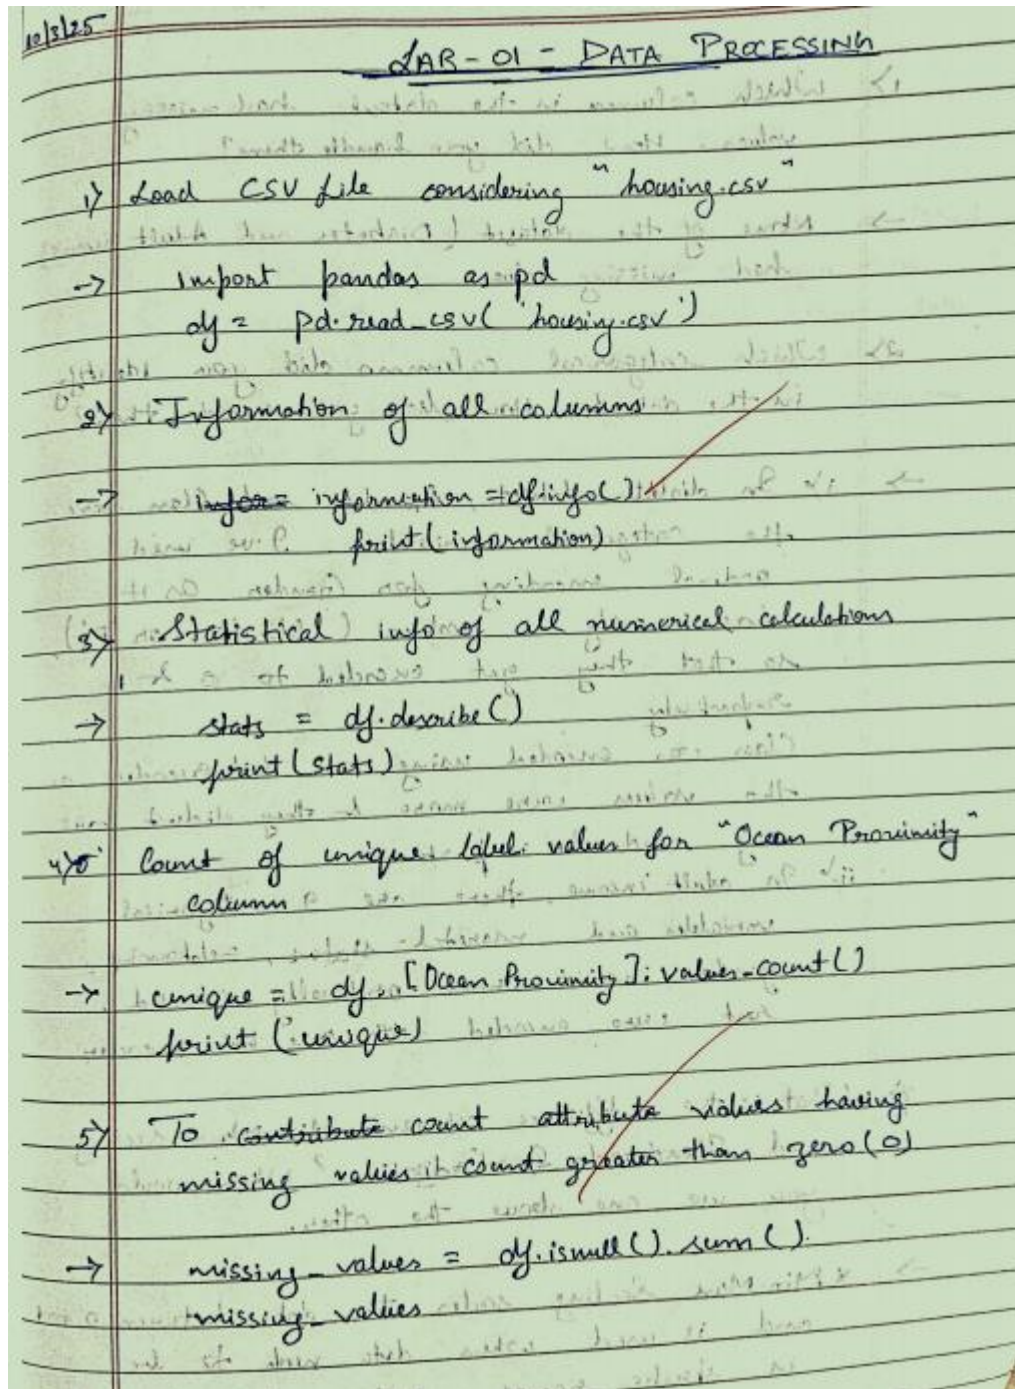 10/3/25
LAB-01 - DATA PROCESSING
1) Load CSV file considering "housing.csv"
→ import pandas as pd
df = pd.read_csv('housing.csv')
2) Information of all columns
→ infor= information = df.info()
print(information)
3) Statistical info of all numerical calculations
→ stats = df.describe()
print(stats)
4) Count of unique label values for "Ocean Proximity"
column
→ unique = df.[Ocean Proximity].values_count()
print(unique)
5) To contribute count attribute values having
missing values count greater than zero(0)
→ missing_values = df.isnull().sum().
missing_values